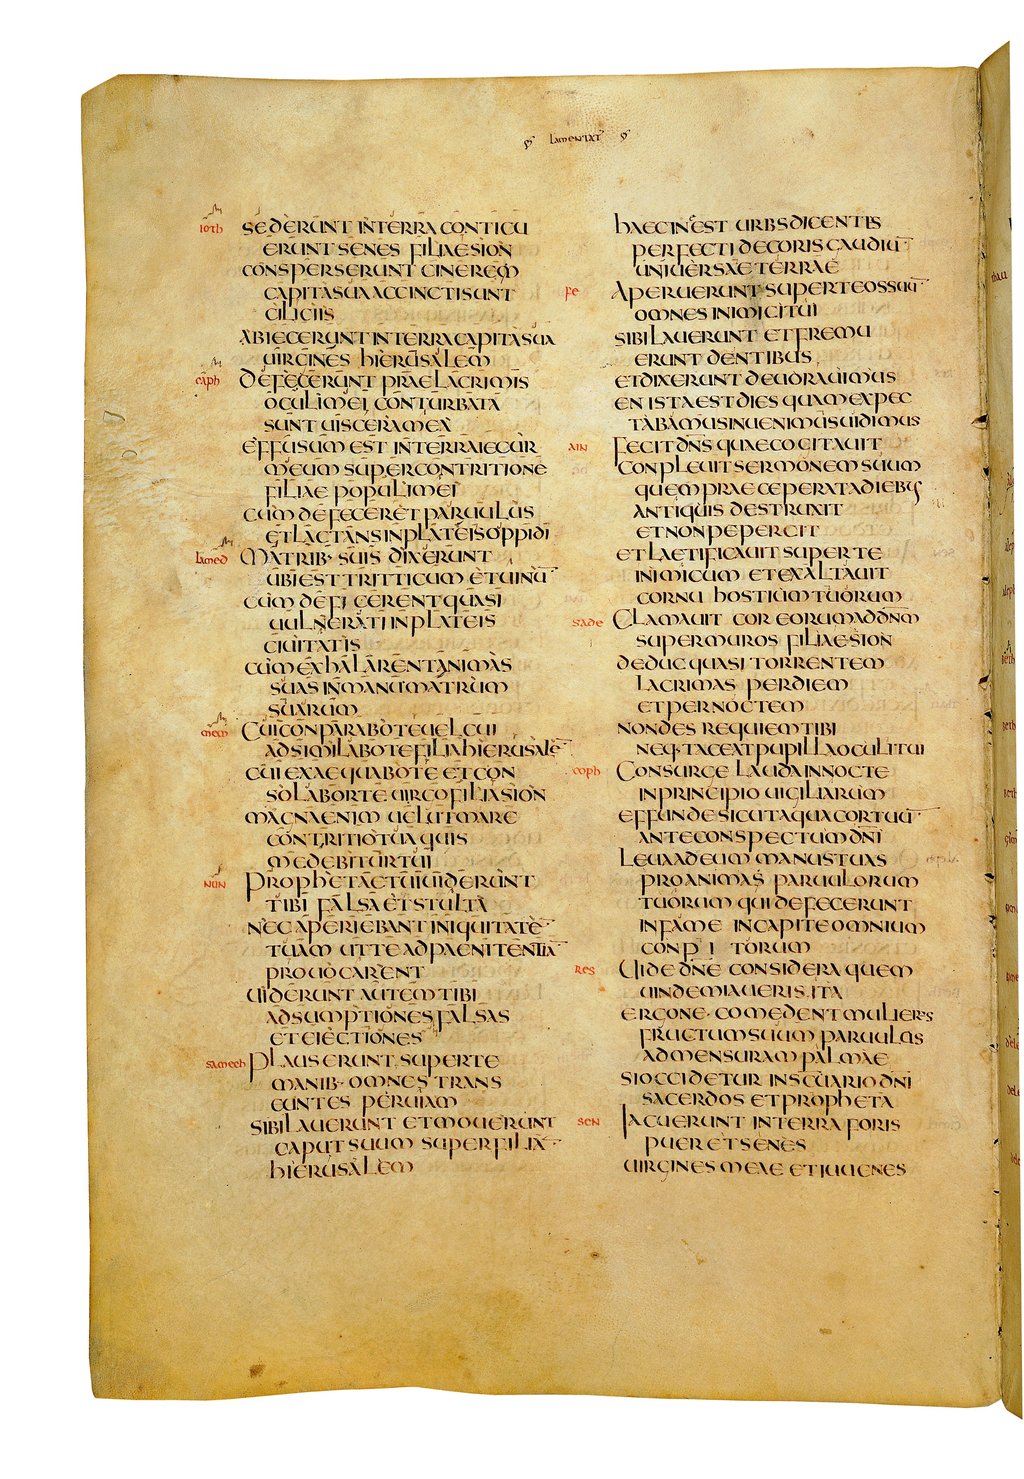 LAMENTAT
IOTH SEDERUNT IN TERRA CONTICU
ERUNT SENES FILIAE SION
CONSPERSERUNT CINEREM
CAPITA SUA ACCINCTI SUNT
CILICIIS
ABIECERUNT IN TERRA CAPITA SUA
UIRGINES HIERUSALEM
CAPH DEFECERUNT PRAE LACRIMIS
OCULI MEI CONTURBATA
SUNT UISCERA MEA
EFFUSUM EST IN TERRA IECUR
MEUM SUPER CONTRITIONE
FILIAE POPULI MEI
CUM DEFECERET PARUULUS
ET LACTANS IN PLATEIS OPPIDI
LAMED MATRIB· SUIS DIXERUNT
UBI EST TRITTICUM ET UINŪ
CUM DEFICERENT QUASI
UULNERATI IN PLATEIS
CIUITATIS
CUM EXHALARENT ANIMAS
SUAS IN MANU MATRUM
SUARUM
MEM CUI CONPARABO TE UEL CUI
ADSIMILABO TE FILIA HIERUSALĒ
CUI EXAEQUABO TE ET CON
SOLABOR TE UIRGO FILIA SION
MAGNA ENIM UELUT MARE
CONTRITIO TUA QUIS
MEDEBITUR TUI
NUN PROPHETAE TUI UIDERUNT
TIBI FALSA ET STULTA
NEC APERIEBANT INIQUITATĒ
TUAM UT TE AD PAENITENTIĀ
PROUOCARENT
UIDERUNT AUTEM TIBI
ADSUMPTIONES FALSAS
ET EIECTIONES
SAMECH PLAUSERUNT SUPER TE
MANIB· OMNES TRANS
EUNTES PER UIAM
SIBILAUERUNT ET MOUERUNT
CAPUT SUUM SUPER FILIĀ
HIERUSALEM
HAECINE EST URBS DICENTIS
PERFECTI DECORIS GAUDIŪ
UNIUERSAE TERRAE
FE APERUERUNT SUPER TE OS SUŪ
OMNES INIMICI TUI
SIBILAUERUNT ET FREMU
ERUNT DENTIBUS
ET DIXERUNT DEUORAUIMUS
EN ISTA EST DIES QUAM EXPEC
TABAMUS INUENIMUS UIDIMUS
AIN FECIT DN̄S QUAE COGITAUIT
CONPLEUIT SERMONEM SUUM
QUEM PRAECEPERAT A DIEBUS
ANTIQUIS DESTRUXIT
ET NON PEPERCIT
ET LAETIFICAUIT SUPER TE
INIMICUM ET EXALTAUIT
CORNU HOSTIUM TUORUM
SADE CLAMAUIT COR EORUM AD DN̄M
SUPER MUROS FILIAE SION
DEDUC QUASI TORRENTEM
LACRIMAS PER DIEM
ET PER NOCTEM
NON DES REQUIEM TIBI
NEQ· TACEAT PUPILLA OCULI TUI
COPH CONSURGE LAUDA IN NOCTE
IN PRINCIPIO UIGILIARUM
EFFUNDE SICUT AQUA COR TUŪ
ANTE CONSPECTUM DN̄I
LEUA AD EUM MANUS TUAS
PRO ANIMAS PARUULORUM
TUORUM QUI DEFECERUNT
IN FAME IN CAPITE OMNIUM
CONPITORUM
RES UIDE DN̄E CONSIDERA QUEM
UINDEMIAUERIS ITA
ERGONE COMEDENT MULIERES
FRUCTUM SUUM PARUULUS
AD MENSURAM PALMAE
SI OCCIDETUR IN SC̄UARIO DN̄I
SACERDOS ET PROPHETA
SEN IACUERUNT IN TERRA FORIS
PUER ET SENES
UIRGINES MEAE ET IUUENES